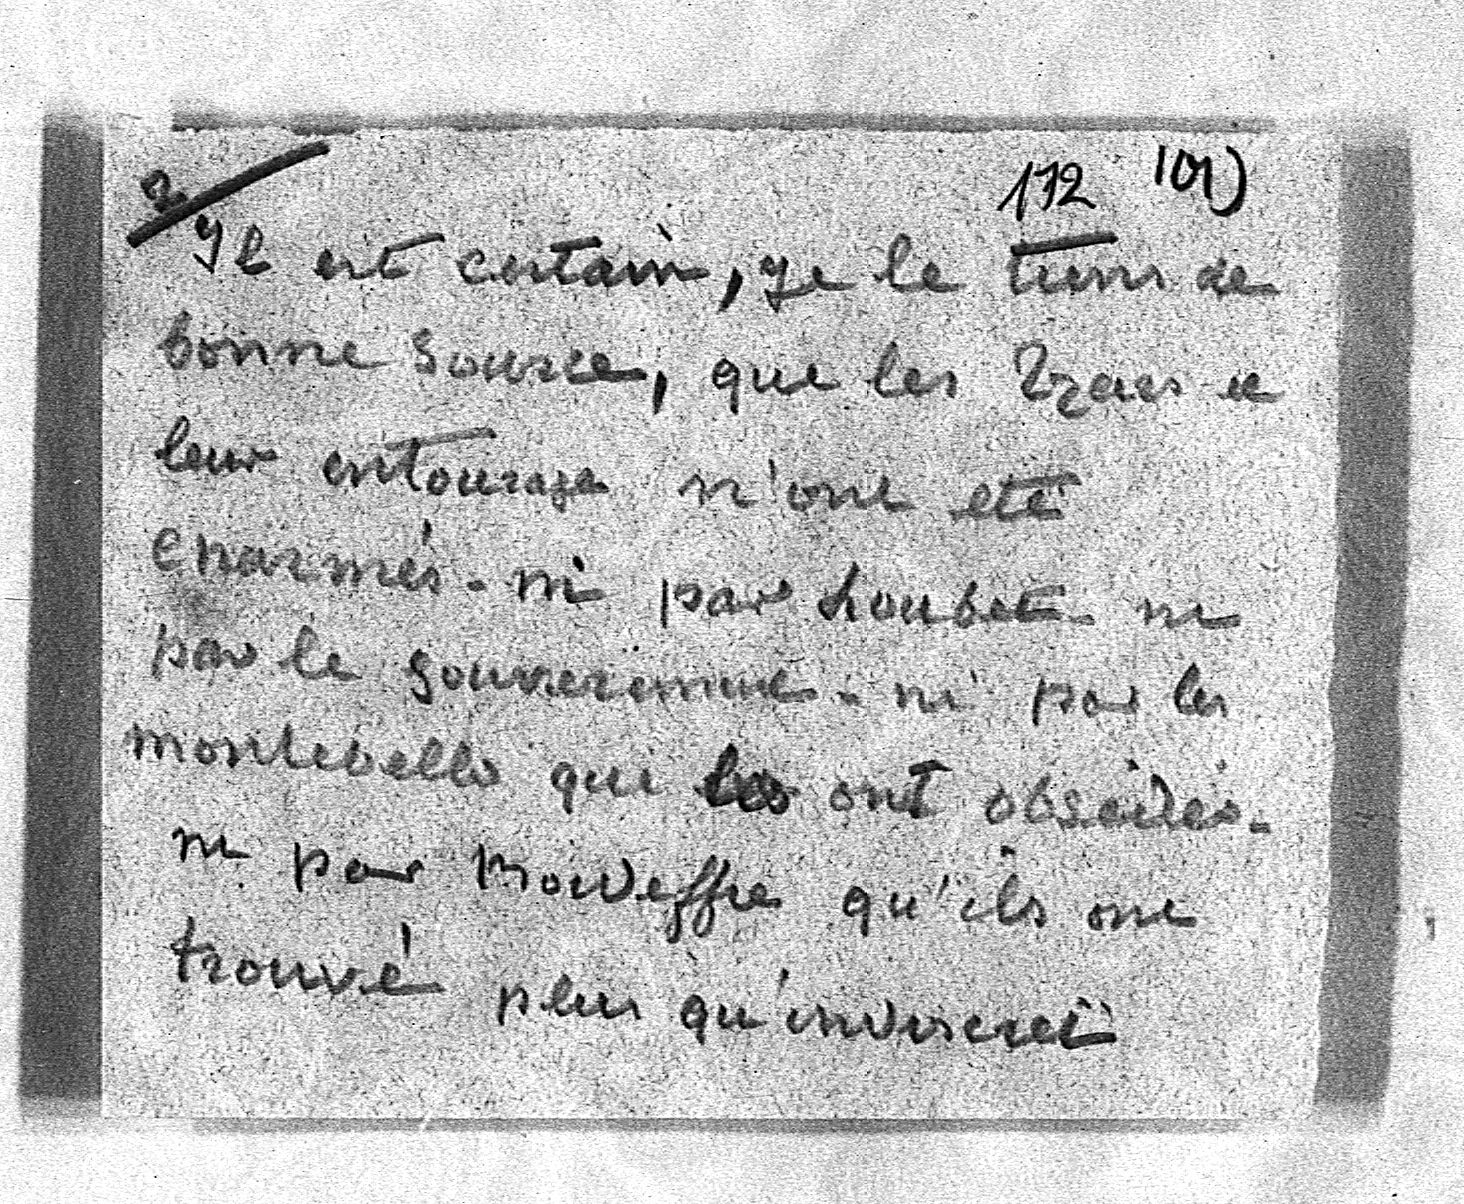 2
172 101)
Il est certain, je le tiens de
bonne source, que les Tzars et
leur entourage n'ont été
charmés - ni par Loubet - ni
par le gouvernement - ni par les
Montebello qui les ont obsédés -
ni par qu'ils ont
trouvé plus qu'indiscret